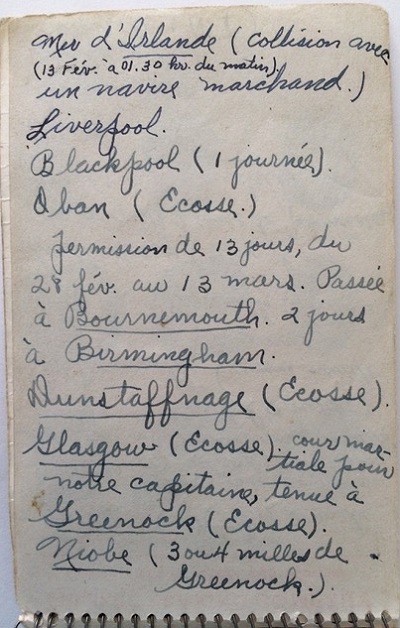 Mer d'Irlande (collision avec
(13 Fév. à 01.30 hr. du matin).
un navire marchand.)
Liverpool.
Blackpool (1 journée).
Oban (Ecosse.)
permission de 13 jours, du
28 fév. au 13 mars. Passée
à Bournemouth. 2 jours
à Birmingham.
Dunstaffnage (Ecosse).
Glasgow (Ecosse). cour mar-
tiale pour
notre capitaine, tenue à
Greenock (Ecosse).
Niobe (3 ou 4 milles de
Greenock.).